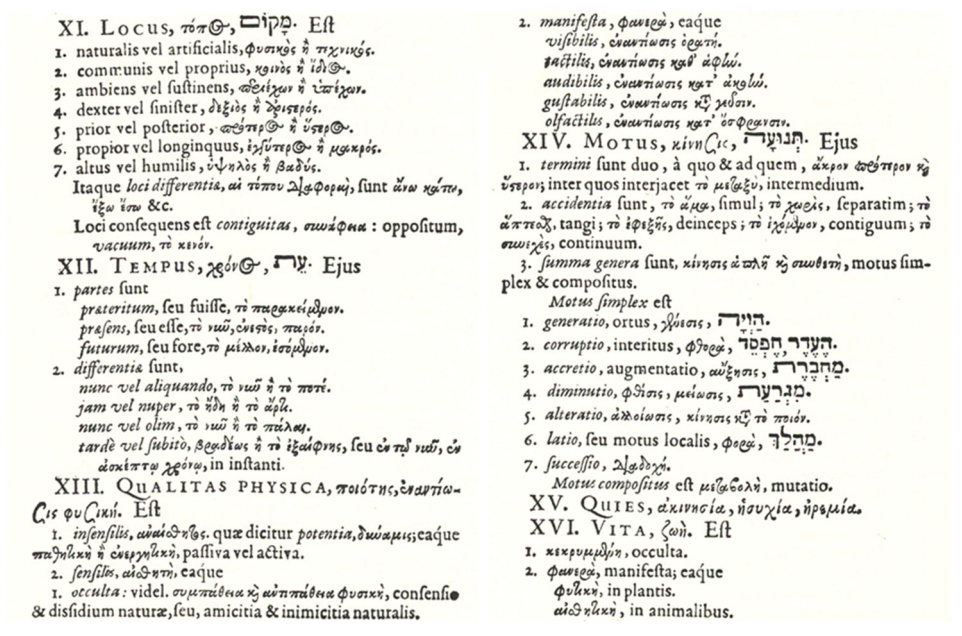 XI. Locus, τόπος, מָקוֹם. Est
1. naturalis vel artificialis, φυσικὸς ἢ τεχνικός.
2. communis vel proprius, κοινὸς ἢ ἴδιος.
3. ambiens vel sustinens, περιέχων ἢ ὑπέχων.
4. dexter vel sinister, δεξιὸς ἢ ἀριστερός.
5. prior vel posterior, πρότερος ἢ ὕστερος.
6. propior vel longinquus, ἐγγύτερος ἢ μακρός.
7. altus vel humilis, ὑψηλὸς ἢ βαθύς.
Itaque loci differentiæ, αἱ τόπου διαφοραὶ, sunt ἄνω κάτω,
ἔξω ἔσω &c.
Loci consequens est contiguitas, συνάφεια : oppositum,
vacuum, τὸ κενόν.
XII. Tempus, χρόνος, עֵת. Ejus
1. partes sunt
præteritum, seu fuisse, τὸ παρακείμενον.
præsens, seu esse, τὸ νῦν, ἐνεστὸς, παρόν.
futurum, seu fore, τὸ μέλλον, ἐσόμενον.
2. differentiæ sunt,
nunc vel aliquando, τὸ νῦν ἢ τὸ ποτέ.
jam vel nuper, τὸ ἤδη ἢ τὸ ἄρτι.
nunc vel olim, τὸ νῦν ἢ τὸ πάλαι.
tardè vel subitò, βραδέως ἢ τὸ ἐξαίφνης, seu ἐν τῷ νῦν, ἐν
ἀσκέπτῳ χρόνῳ, in instanti.
XIII. Qualitas physica, ποιότης, ἐναντίω-
σις φυσική. Est
1. insensilis, ἀναίσθητος. quæ dicitur potentia, δύναμις; eaque
παθητικὴ ἢ ἐνεργητικὴ, passiva vel activa.
2. sensilis, αἰσθητὴ, eaque
1. occulta : videl. συμπάθεια καὶ ἀντιπάθεια φυσικὴ, consensio
& dissidium naturæ, seu, amicitia & inimicitia naturalis.
2. manifesta, φανερὰ, eaque
visibilis, ἐναντίωσις ὁρατή.
tactilis, ἐναντίωσις καθ' ἁφήν.
audibilis, ἐναντίωσις κατ' ἀκοήν.
gustabilis, ἐναντίωσις κατὰ γεῦσιν.
olfactilis, ἐναντίωσις κατ' ὄσφρανσιν.
XIV. Motus, κίνησις, תְּנוּעָה. Ejus
1. termini sunt duo, à quo & ad quem, ἄκρον πρότερον καὶ
ὕστερον; inter quos interjacet τὸ μεταξὺ, intermedium.
2. accidentia sunt, τὸ ἅμα, simul; τὸ χωρὶς, separatim; τὸ
ἅπτεσθαι, tangi; τὸ ἐφεξῆς, deinceps; τὸ ἐχόμενον, contiguum; τὸ
συνεχὲς, continuum.
3. summa genera sunt, κίνησις ἁπλῆ καὶ συνθετὴ, motus sim-
plex & compositus.
Motus simplex est
1. generatio, ortus, γένεσις, הֲוָיָה.
2. corruptio, interitus, φθορὰ, הֶעְדֵּר הֶפְסֵד.
3. accretio, augmentatio, αὔξησις, מַחְבֶּרֶת.
4. diminutio, φθίσις, μείωσις, מִגְרַעַת.
5. alteratio, ἀλλοίωσις, κίνησις κατὰ τὸ ποιόν.
6. latio, seu motus localis, φορὰ, מַהֲלַךְ.
7. successio, διαδοχή.
Motus compositus est μεταβολὴ, mutatio.
XV. Quies, ἀκινησία, ἡσυχία, ἠρεμία.
XVI. Vita, ζωή. Est
1. κεκρυμμένη, occulta.
2. φανερὰ, manifesta; eaque
φυτικὴ, in plantis.
αἰσθητικὴ, in animalibus.